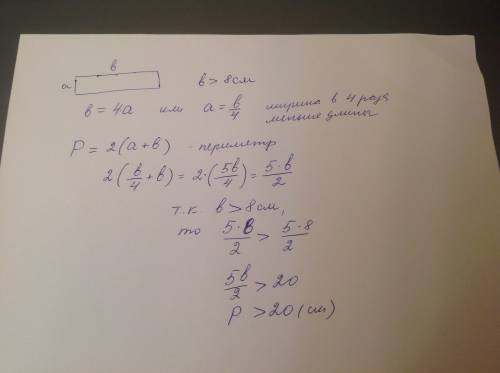 в
а
в > 8 см
в = 4а или а = в/4 ширина в 4 раза
меньше длины
P = 2(а+в) - периметр
2(в/4 + в) = 2·(5в/4) = 5·в/2
т.к. в > 8 см,
то 5·в/2 > 5·8/2
5в/2 > 20
P > 20 (см)